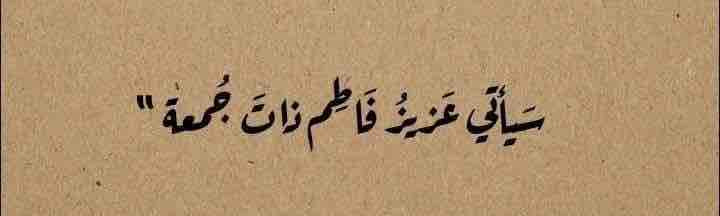 سَيأتي عَزيزُ فَاطِم ذاتَ جُمعة "